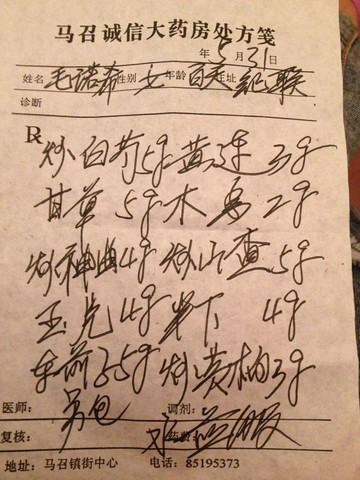 马召诚信大药房处方笺
年5月31日
姓名 毛诺希 性别 女 年龄 百天 住址 纪联
诊断
R 炒白芍5g 黄连3g
甘草5g 木香2g
炒神曲4g 炒山查5g
玉片4g 半下4g
车前子5g 炒黄柏3g
医师: 另包 调剂:
复核: 水煎服
地址:马召镇街中心 电话:85195373